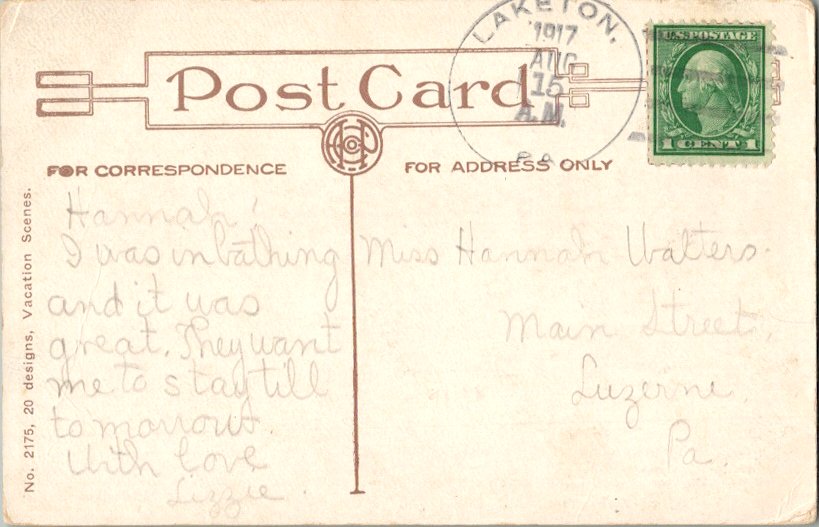 LAKETON,
1917
AUG
15
A.M.
PA.
U.S. POSTAGE
1 CENT 1
Post Card
FOR CORRESPONDENCE
FOR ADDRESS ONLY
No. 2175, 20 designs, Vacation Scenes.
Hannah!
I was in bathing
and it was
great. They want
me to stay till
tomorrow.
With love
Lizzie.
Miss Hannah Walters.
Main Street,
Luzerne.
Pa.